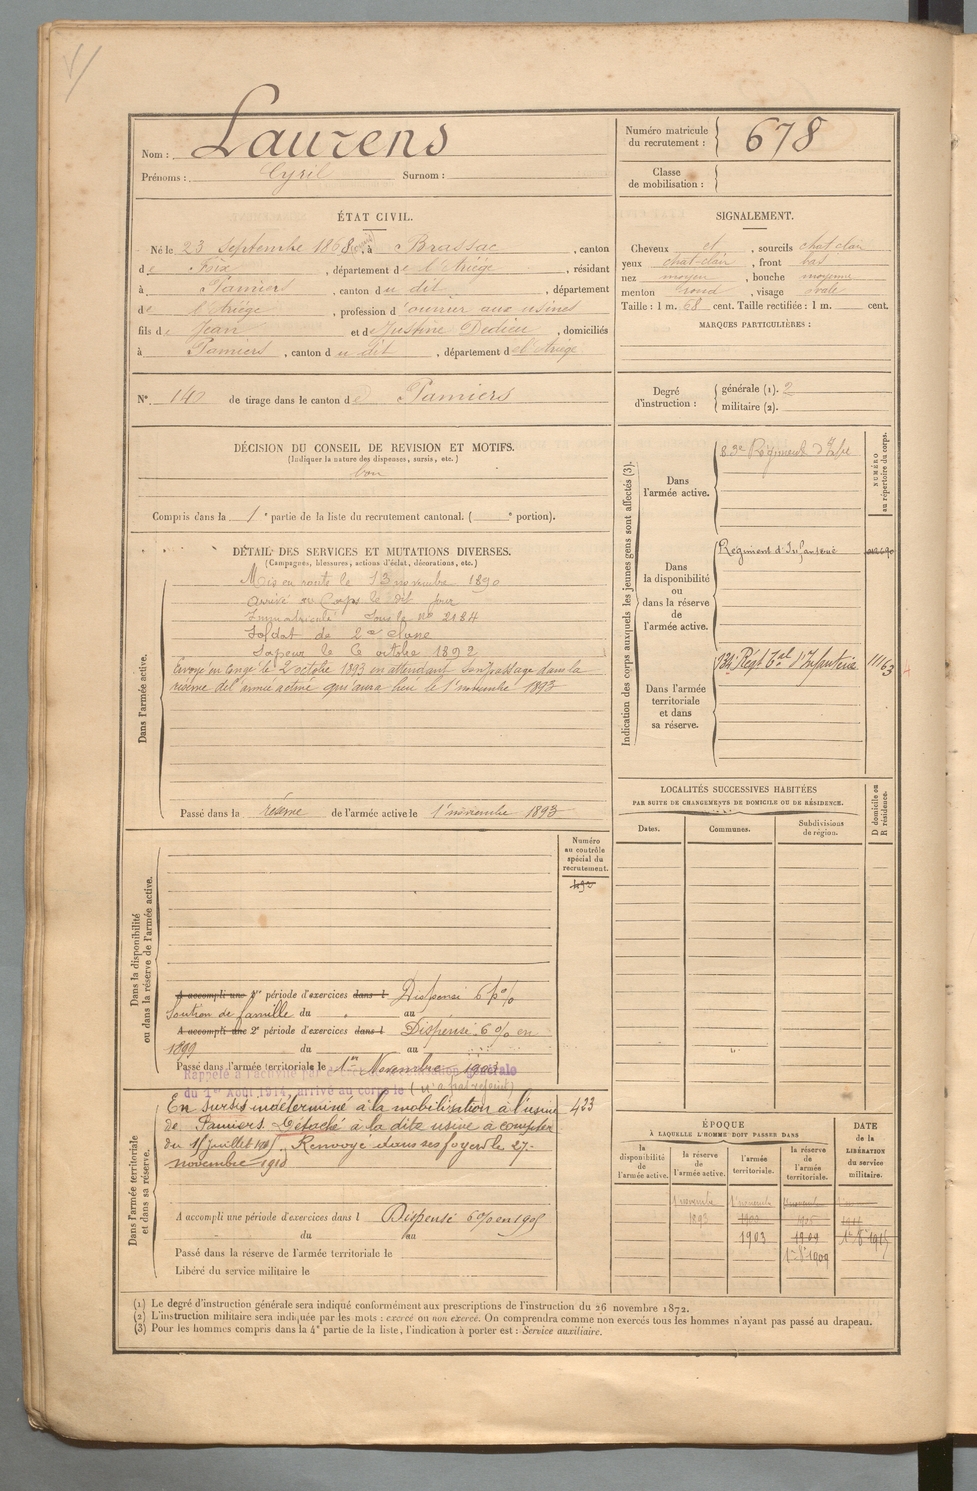 Nom : Laurens
Prénoms : Cyril Surnom :
Numéro matricule du recrutement : 678
Classe de mobilisation :
ÉTAT CIVIL.
Né le 23 Septembre 1868, à Brassac, canton
de Foix, département de l'Ariège, résidant
à Pamiers, canton du dit, département
de l'Ariège, profession d'ouvrier aux usines
fils de Jean et de Justine Dedieu, domiciliés
à Pamiers, canton du dit, département de l'Ariège
N° 140 de tirage dans le canton de Pamiers
SIGNALEMENT.
Cheveux et, sourcils chat clair
yeux chat-clair, front bas
nez moyen, bouche moyenne
menton rond, visage ovale
Taille : 1 m. 68 cent. Taille rectifiée : 1 m. cent.
MARQUES PARTICULIÈRES :
Degré d'instruction : générale (1). 2
militaire (2).
DÉCISION DU CONSEIL DE REVISION ET MOTIFS.
(Indiquer la nature des dispenses, sursis, etc.)
bon
Compris dans la 1e partie de la liste du recrutement cantonal. ( e portion).
DÉTAIL DES SERVICES ET MUTATIONS DIVERSES.
(Campagnes, blessures, actions d'éclat, décorations, etc.)
Dans l'armée active.
Mis en route le 13 novembre 1890
arrivé au Corps le dit jour
Immatriculé sous le n° 2184
Soldat de 2e classe
Sapeur le 6 octobre 1892
Envoyé en congé le 2 octobre 1893 en attendant son passage dans la
réserve de l'armée active qui aura lieu le 1er novembre 1893
Passé dans la réserve de l'armée active le 1er novembre 1893
Indication des corps auxquels les jeunes gens sont affectés (3).
NUMÉRO au répertoire du corps.
Dans l'armée active.
83e Régiment d'Infie
Dans la disponibilité ou dans la réserve de l'armée active.
Régiment d'Infanterie
Dans l'armée territoriale et dans sa réserve.
134e Régt Tal d'Infanterie 11163
LOCALITÉS SUCCESSIVES HABITÉES
PAR SUITE DE CHANGEMENTS DE DOMICILE OU DE RÉSIDENCE.
Dates. Communes. Subdivisions de région. D domicile ou R résidence.
Dans la disponibilité ou dans la réserve de l'armée active.
Numéro au contrôle spécial du recrutement.
A accompli une 1re période d'exercices dans l Dispensé 6 p%
Soutien de famille du au
A accompli une 2e période d'exercices dans l Dispensé 6% en
1899 du au
Passé dans l'armée territoriale le 1er Novembre 1903
du 1er Août 1914, arrivé au corps le
Dans l'armée territoriale et dans sa réserve.
En sursis indéterminé à la mobilisation à l'usine 423
de Pamiers. Détaché à la dite usine à compter
du 1er juillet 1917. Renvoyé dans ses foyers le 27
novembre 1918
A accompli une période d'exercices dans l Dispensé 6% en 1905
du au
Passé dans la réserve de l'armée territoriale le
Libéré du service militaire le
ÉPOQUE
À LAQUELLE L'HOMME DOIT PASSER DANS
la disponibilité de l'armée active.
la réserve de l'armée active.
l'armée territoriale.
la réserve de l'armée territoriale.
DATE de la LIBÉRATION du service militaire.
1er novembre 1er novembre
1893
1903 1909
1er 8bre 1909
(1) Le degré d'instruction générale sera indiqué conformément aux prescriptions de l'instruction du 26 novembre 1872.
(2) L'instruction militaire sera indiquée par les mots : exercé ou non exercé. On comprendra comme non exercés tous les hommes n'ayant pas passé au drapeau.
(3) Pour les hommes compris dans la 4e partie de la liste, l'indication à porter est : Service auxiliaire.